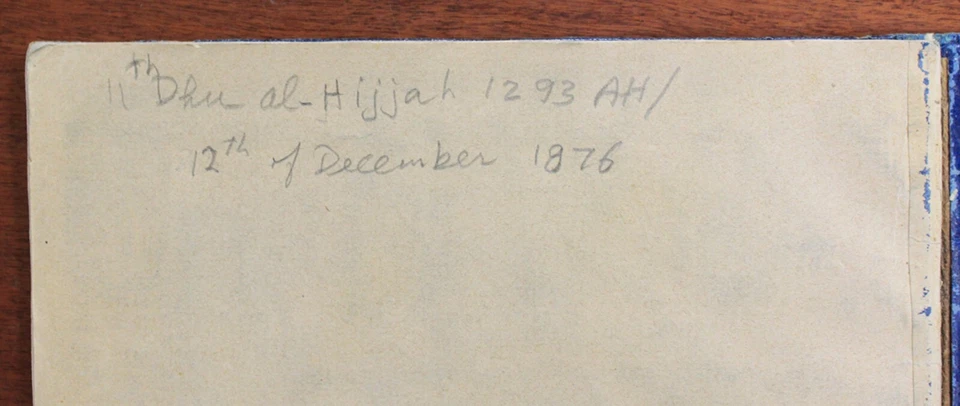 11th Dhu al-Hijjah 1293 AH/
12th of December 1876